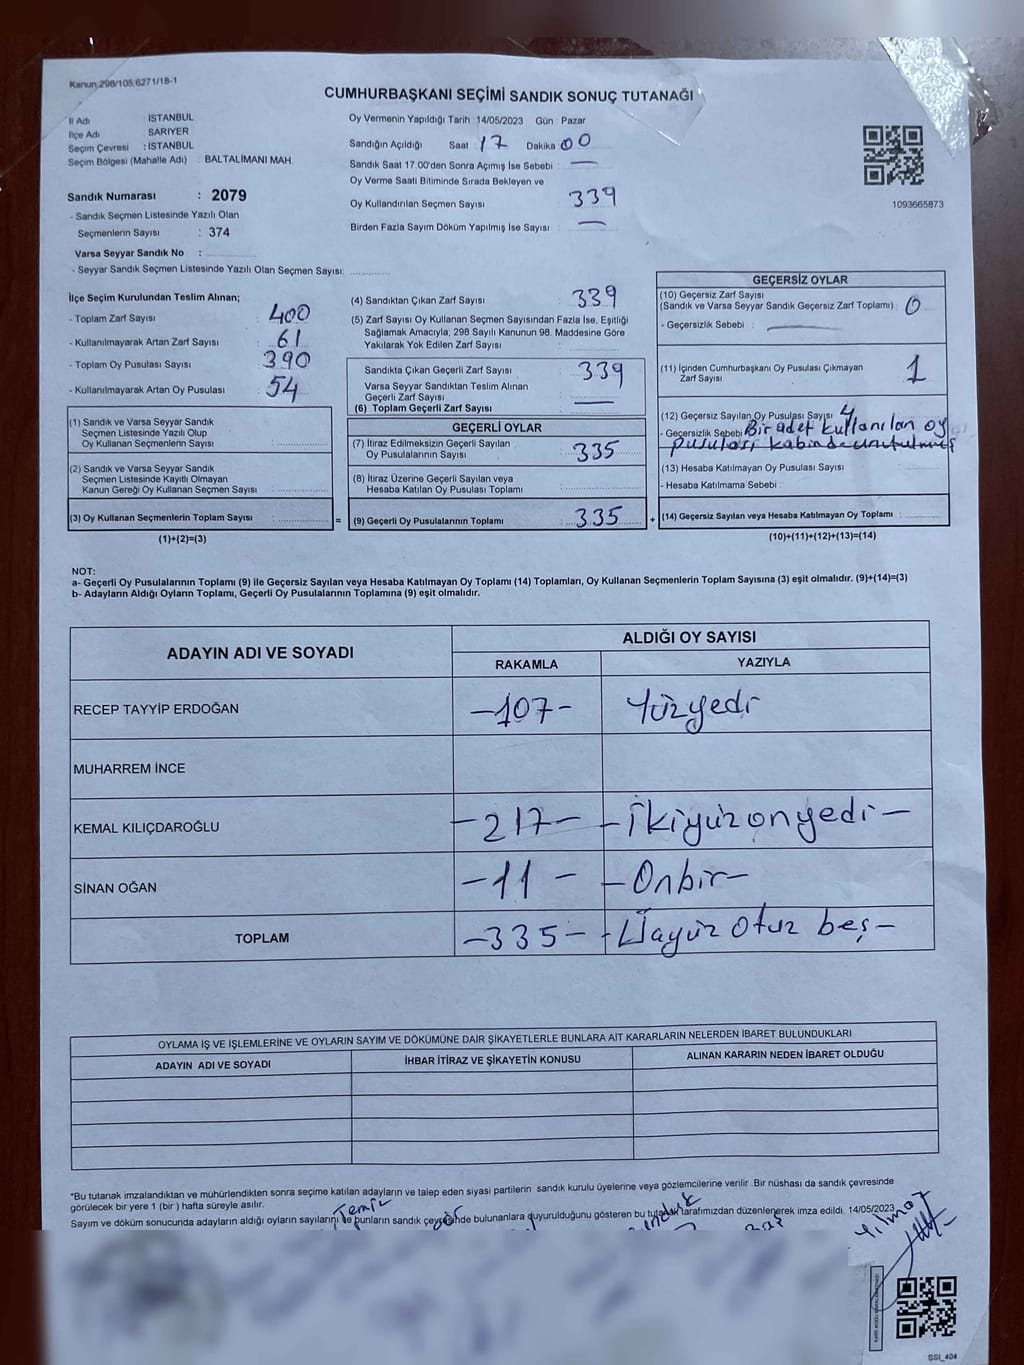 Kanun 298/105,6271/18-1
CUMHURBAŞKANI SEÇİMİ SANDIK SONUÇ TUTANAĞI
İl Adı İSTANBUL
İlçe Adı SARIYER
Seçim Çevresi : İSTANBUL
Seçim Bölgesi (Mahalle Adı) : BALTALİMANI MAH.
Sandık Numarası : 2079
- Sandık Seçmen Listesinde Yazılı Olan
Seçmenlerin Sayısı : 374
Varsa Seyyar Sandık No :
- Seyyar Sandık Seçmen Listesinde Yazılı Olan Seçmen Sayısı:
Oy Vermenin Yapıldığı Tarih : 14/05/2023 Gün : Pazar
Sandığın Açıldığı Saat 17 Dakika 00
Sandık Saat 17:00'den Sonra Açımış İse Sebebi : —
Oy Verme Saati Bitiminde Sırada Bekleyen ve
Oy Kullandırılan Seçmen Sayısı 339
Birden Fazla Sayım Döküm Yapılmış İse Sayısı : —
1093665873
İlçe Seçim Kurulundan Teslim Alınan;
- Toplam Zarf Sayısı : 400
- Kullanılmayarak Artan Zarf Sayısı : 61
- Toplam Oy Pusulası Sayısı : 390
- Kullanılmayarak Artan Oy Pusulası : 54
(1) Sandık ve Varsa Seyyar Sandık
Seçmen Listesinde Yazılı Olup
Oy Kullanan Seçmenlerin Sayısı :
(2) Sandık ve Varsa Seyyar Sandık
Seçmen Listesinde Kayıtlı Olmayan
Kanun Gereği Oy Kullanan Seçmen Sayısı :
(3) Oy Kullanan Seçmenlerin Toplam Sayısı :
(1)+(2)=(3)
(4) Sandıktan Çıkan Zarf Sayısı : 339
(5) Zarf Sayısı Oy Kullanan Seçmen Sayısından Fazla İse, Eşitliği
Sağlamak Amacıyla; 298 Sayılı Kanunun 98. Maddesine Göre
Yakılarak Yok Edilen Zarf Sayısı :
Sandıkta Çıkan Geçerli Zarf Sayısı : 339
Varsa Seyyar Sandıktan Teslim Alınan
Geçerli Zarf Sayısı : —
(6) Toplam Geçerli Zarf Sayısı :
GEÇERLİ OYLAR
(7) İtiraz Edilmeksizin Geçerli Sayılan
Oy Pusulalarının Sayısı : 335
(8) İtiraz Üzerine Geçerli Sayılan veya
Hesaba Katılan Oy Pusulası Toplamı :
= (9) Geçerli Oy Pusulalarının Toplamı : 335 +
GEÇERSİZ OYLAR
(10) Geçersiz Zarf Sayısı
(Sandık ve Varsa Seyyar Sandık Geçersiz Zarf Toplamı) : 0
- Geçersizlik Sebebi : —
(11) İçinden Cumhurbaşkanı Oy Pusulası Çıkmayan
Zarf Sayısı 1
(12) Geçersiz Sayılan Oy Pusulası Sayısı : 4
- Geçersizlik Sebebi : Bir adet kullanılan oy
pusulası kabinde unutulmuş
(13) Hesaba Katılmayan Oy Pusulası Sayısı :
- Hesaba Katılmama Sebebi :
(14) Geçersiz Sayılan veya Hesaba Katılmayan Oy Toplamı :
(10)+(11)+(12)+(13)=(14)
NOT:
a- Geçerli Oy Pusulalarının Toplamı (9) ile Geçersiz Sayılan veya Hesaba Katılmayan Oy Toplamı (14) Toplamları, Oy Kullanan Seçmenlerin Toplam Sayısına (3) eşit olmalıdır. (9)+(14)=(3)
b- Adayların Aldığı Oyların Toplamı, Geçerli Oy Pusulalarının Toplamına (9) eşit olmalıdır.
ADAYIN ADI VE SOYADI
ALDIĞI OY SAYISI
RAKAMLA YAZIYLA
RECEP TAYYİP ERDOĞAN -107- Yüzyedi
MUHARREM İNCE
KEMAL KILIÇDAROĞLU -217- -İkiyüzonyedi-
SİNAN OĞAN -11- -Onbir-
TOPLAM -335- -Üçyüz otuz beş-
OYLAMA İŞ VE İŞLEMLERİNE VE OYLARIN SAYIM VE DÖKÜMÜNE DAİR ŞİKAYETLERLE BUNLARA AİT KARARLARIN NELERDEN İBARET BULUNDUKLARI
ADAYIN ADI VE SOYADI
İHBAR İTİRAZ VE ŞİKAYETİN KONUSU
ALINAN KARARIN NEDEN İBARET OLDUĞU
*Bu tutanak imzalandıktan ve mühürlendikten sonra seçime katılan adayların ve talep eden siyasi partilerin sandık kurulu üyelerine veya gözlemcilerine verilir .Bir nüshası da sandık çevresinde
görülecek bir yere 1 (bir ) hafta süreyle asılır.
Sayım ve döküm sonucunda adayların aldığı oyların sayılarını ve bunların sandık çevresinde bulunanlara duyurulduğunu gösteren bu tutanak tarafımızdan düzenlenerek imza edildi. 14/05/2023
Temiz
Yılmaz
SSI_404